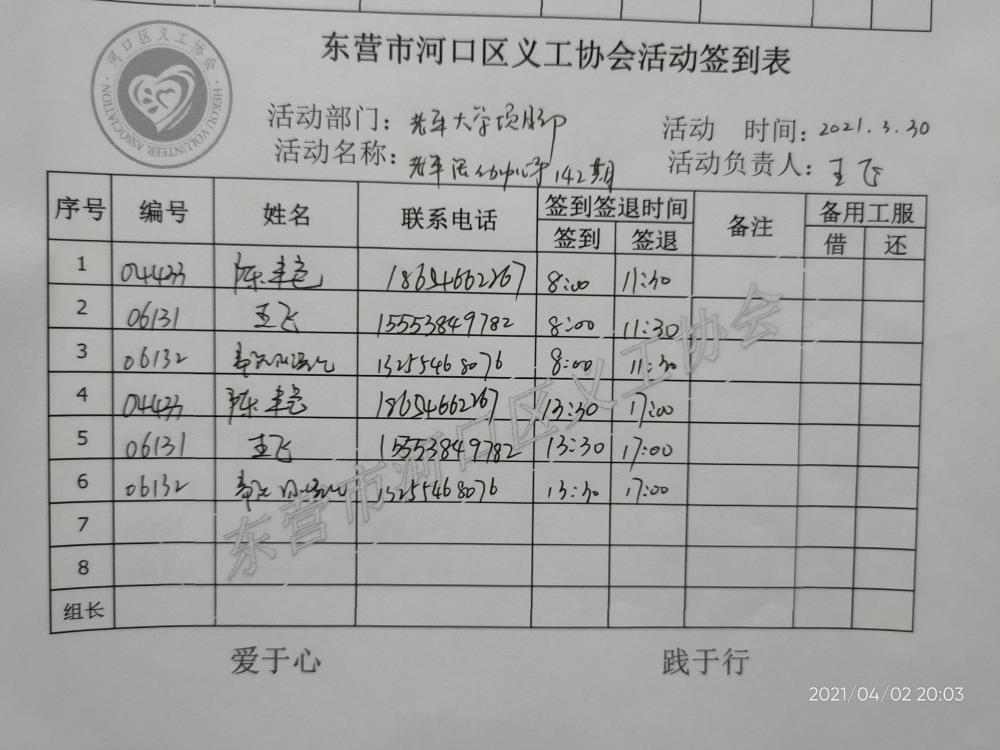 东营市河口区义工协会活动签到表
河口区义工协会
HEKOU VOLUNTEER ASSOCIATION
活动部门：老年大学项目部
活动 时间：2021.3.30
活动名称：老年活动中心 142期
活动负责人：王飞
序号 编号 姓名 联系电话 签到签退时间 备注 备用工服
签到 签退 借 还
1 04433 陈 18654662267 8:00 11:30
2 06131 王飞 15553849782 8:00 11:30
3 06132 13255468076 8:00 11:30
4 04433 陈 18654662267 13:30 17:00
5 06131 王飞 15553849782 13:30 17:00
6 06132 13255468076 13:30 17:00
7
8
组长
东营市河口区义工协会
爱于心 践于行
2021/04/02 20:03